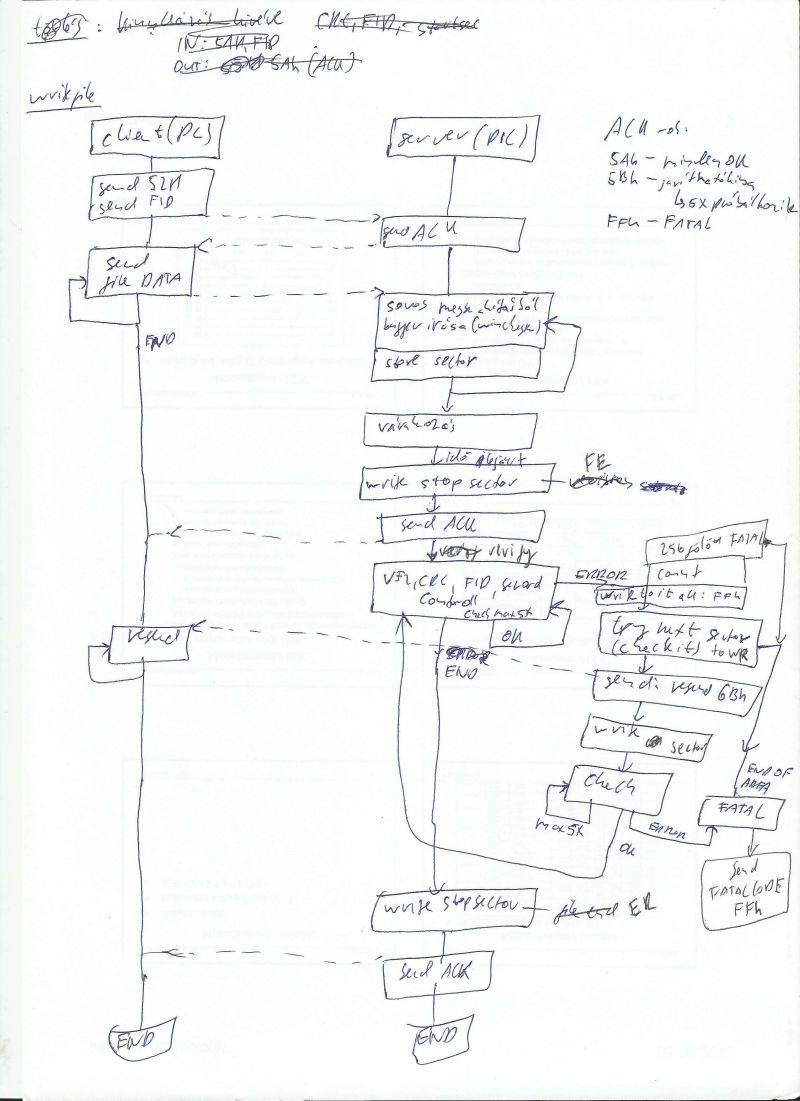 törlés :
CRC, FID, startsec
IN: 5Ah, FID
OUT: 5Ah (ACK)
write file
client (PC)
server (PIC)
ACK-ok:
5Ah - minden OK
6Bh - javítható hiba
5x próbálkozik
FFh - FATAL
send 52h
send FID
send ACK
send
file DATA
END
soros
buffer írása
store sector
várakozás
idő lejárt
write stop sector
FE
send ACK
verify
FID, CRC, FID, record
Controll
check max 5x
ERROR
OK
END
256 fölött FATAL
count
write
FFh
try next sector
(check it) to WR
send: resend 6Bh
write sector
check
max 5x
ERROR
OK
END OF
AREA
FATAL
send
FATAL CODE
FFh
resend
write stop sector
file end
send ACK
END
END